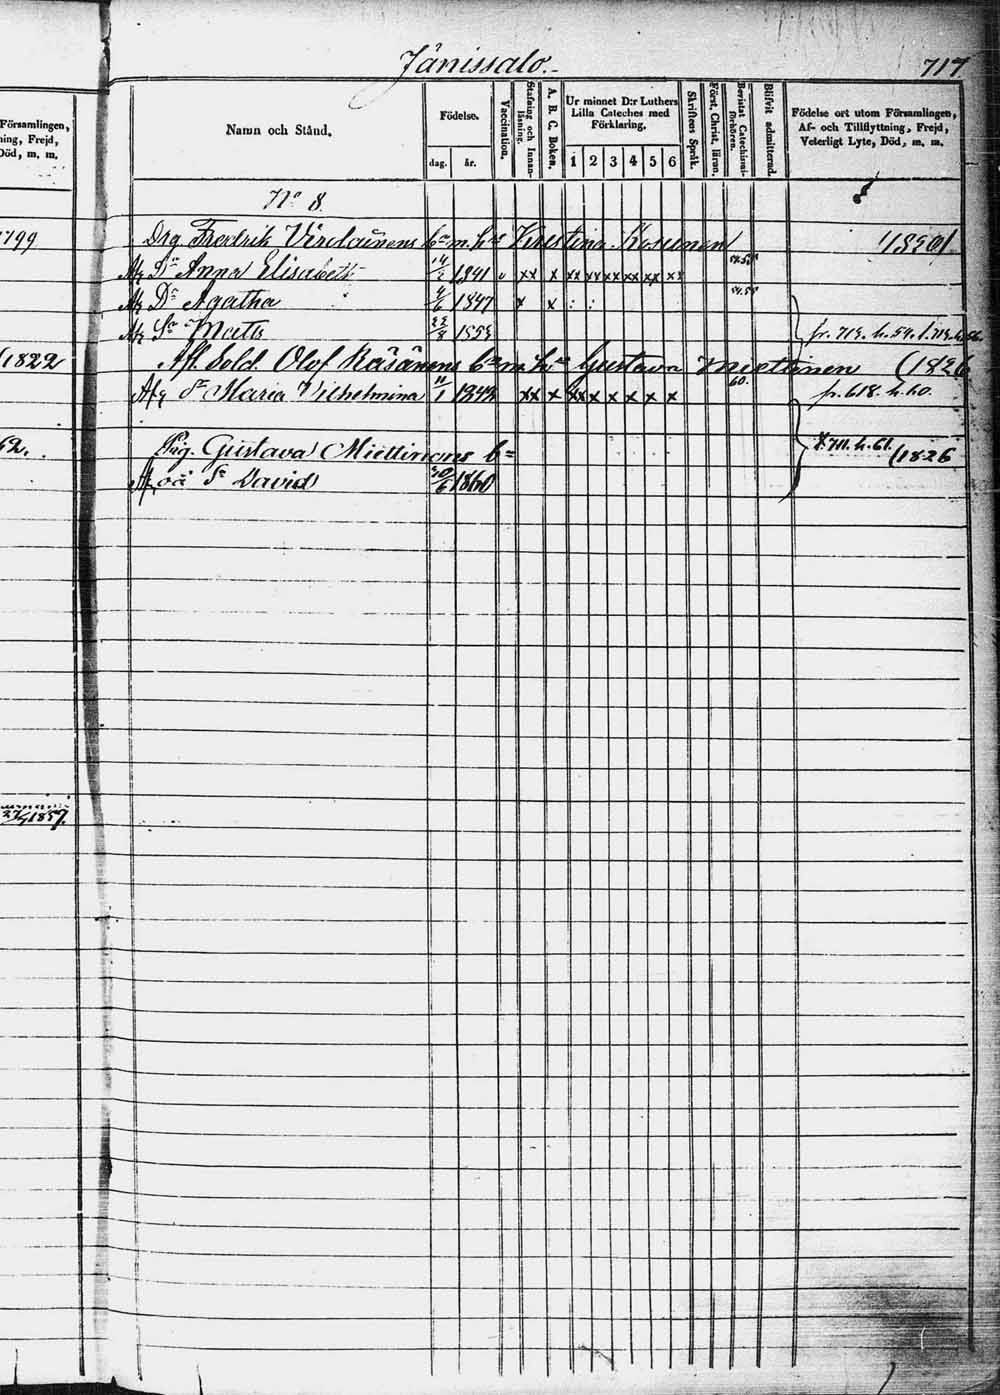 Jänissalo.
717.
Församlingen,
ning, Frejd,
Död, m. m.
Namn och Stånd.
Födelse.
dag. år.
Vaccination.
Stafning och Innanläsning.
A. B. C. Boken.
Ur minnet D:r Luthers
Lilla Cateches med
Förklaring.
1 2 3 4 5 6
Skriftens Språk.
Först. Christ. läran.
Bevistat Catechismiförhören.
Blifvit admitterad.
Födelse ort utom Församlingen,
Af- och Tillflyttning, Frejd,
Veterligt Lyte, Död, m. m.
No 8.
1799
Drg. Fredrik Virolainens bn m. hu Kristina Kosunen
Anna Elisabeth 14/2 1841 v xx x xx xx xx xx xx xx
Dr Agatha 4/6 1847 x x : :
Sn Matts
fr. 713. h. 54.
1822
Afl. Sold. Olof Räsänens bn m. hu Gustava Miettinen (1826
Dr Maria Vilhelmina 11/1 1843 xx x xx x x x x x 60.
fr. 618. h. 60.
62.
Pig. Gustava Miettinens b=
711. h. 61.
(1826
oä Sn David 20/6 1860
1857.